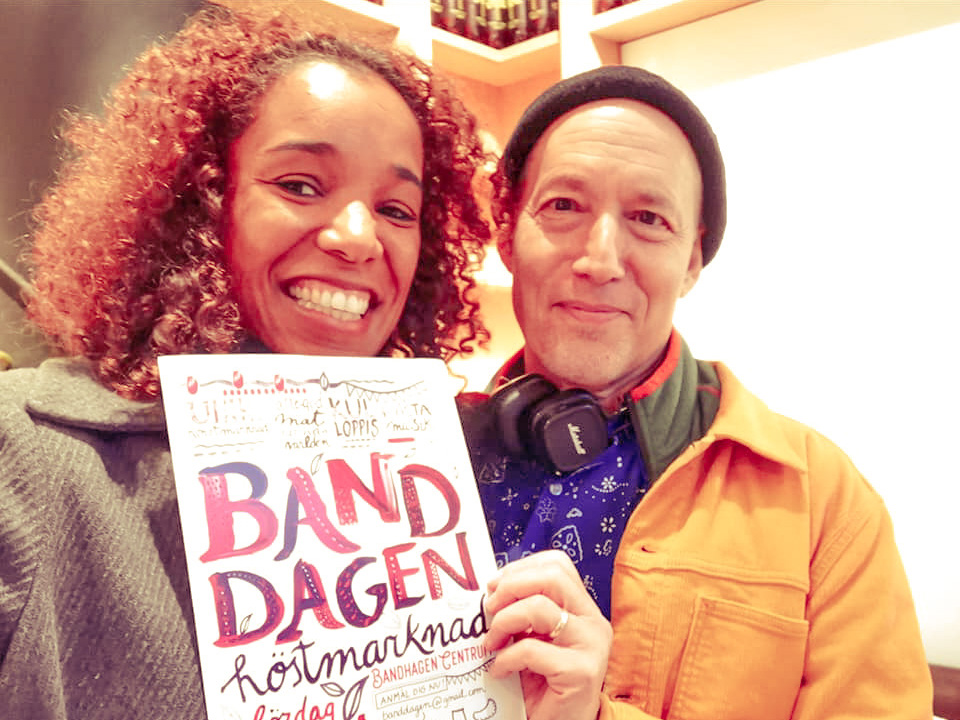 mat
LOPPIS
världen
BAND
DAGEN
höstmarknad
BANDHAGEN CENTRUM
ANMÄL DIG NU!
banddagen@gmail.com
lördag
Marshall